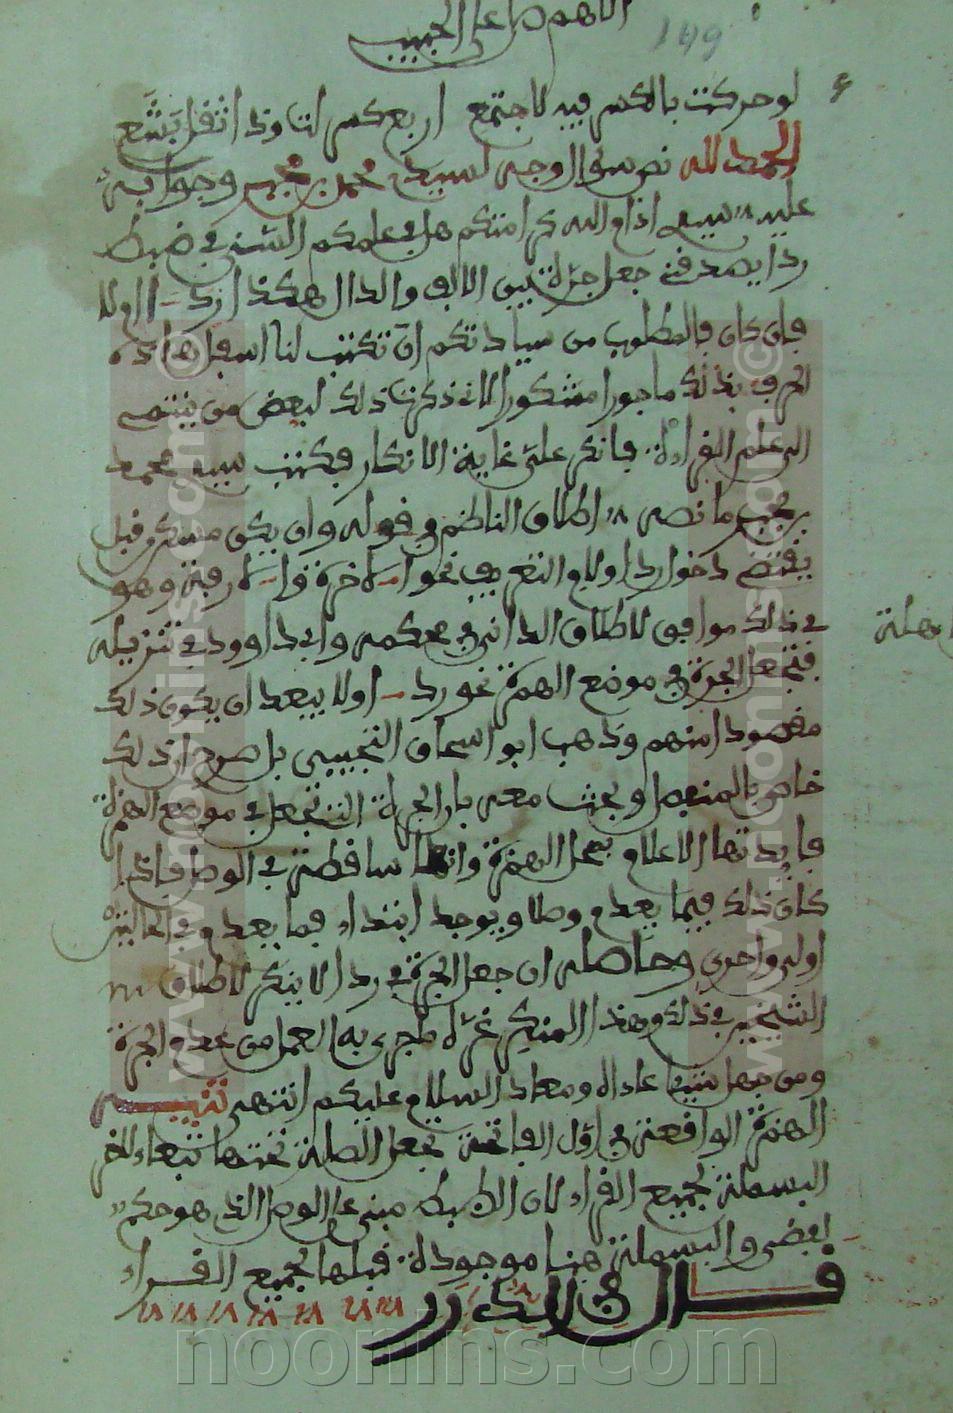 اللهم صل على الحبيب
149
لو حركت بالكسر فيه لاجتمع اربع كسرات وذا ثقل بشع
الحمد لله نص سؤال وجه لسيدي محمد بن مجبر وجوابه
عليه سيدي ادام الله كرامتكم هل في علمكم السني في ضبط
ردا يصدقني جعل جرة بين الالف والدال هكذا رد ا او لا
فان كان فالمطلوب من سيادتكم ان تكتب لنا اسفل هاذه
الحرف بذلك ماجورا مشكورا لانني ذكرت ذلك لبعض من ينتمي
الى علم القراءة فانكر علي غاية الانكار فكتب سيدي محمد
بن مجبر ما نصه اطلاق الناظم في قوله وان يكن مسكن قبل
يقتضي دخول ردا ولام التعريف نحو الاخرة قوا الارفة وهو
في ذلك موافق لاطلاق الداني في محكمه وابي داوود في تنزيله
فتجعل الجرة في موضع الهمزة نحو رد ا ولا يبعد ان يكون ذلك
مقصودا منهم وذهب ابو اسحاق التجيبي بل صرح ان ذلك
خاص بالمنفصل وبحث معه بان الجرة التي تجعل في موضع الهمزة
فايدتها الاعلام بمحل الهمزة وانها ساقطة في الوصل فاذا
كان ذلك فيما يعدم وصلا ويوجد ابتداء فما يعدم في الحالتين
اولى واحرى وحاصله ان جعل الجرة في ردا لا ينكر لاطلاق
الشيخين في ذلك وهذا المنكر غره ما جرى به العمل من عدم الجرة
ومن جهل شيئا عاداه ومعاد السلام عليكم انتهى تنبيه
الهمزة الواقعة في اول الفاتحة تجعل الصلة تحتها تبعا لاخر
البسملة لجميع القراء لان الضبط مبني على الوصل الذي هو حكم
لفظي والبسملة هنا موجودة قبلها لجميع القراء
قال في الدرر
بهلة
www.noonins.com ©
www.noonins.com ©
noonins.com